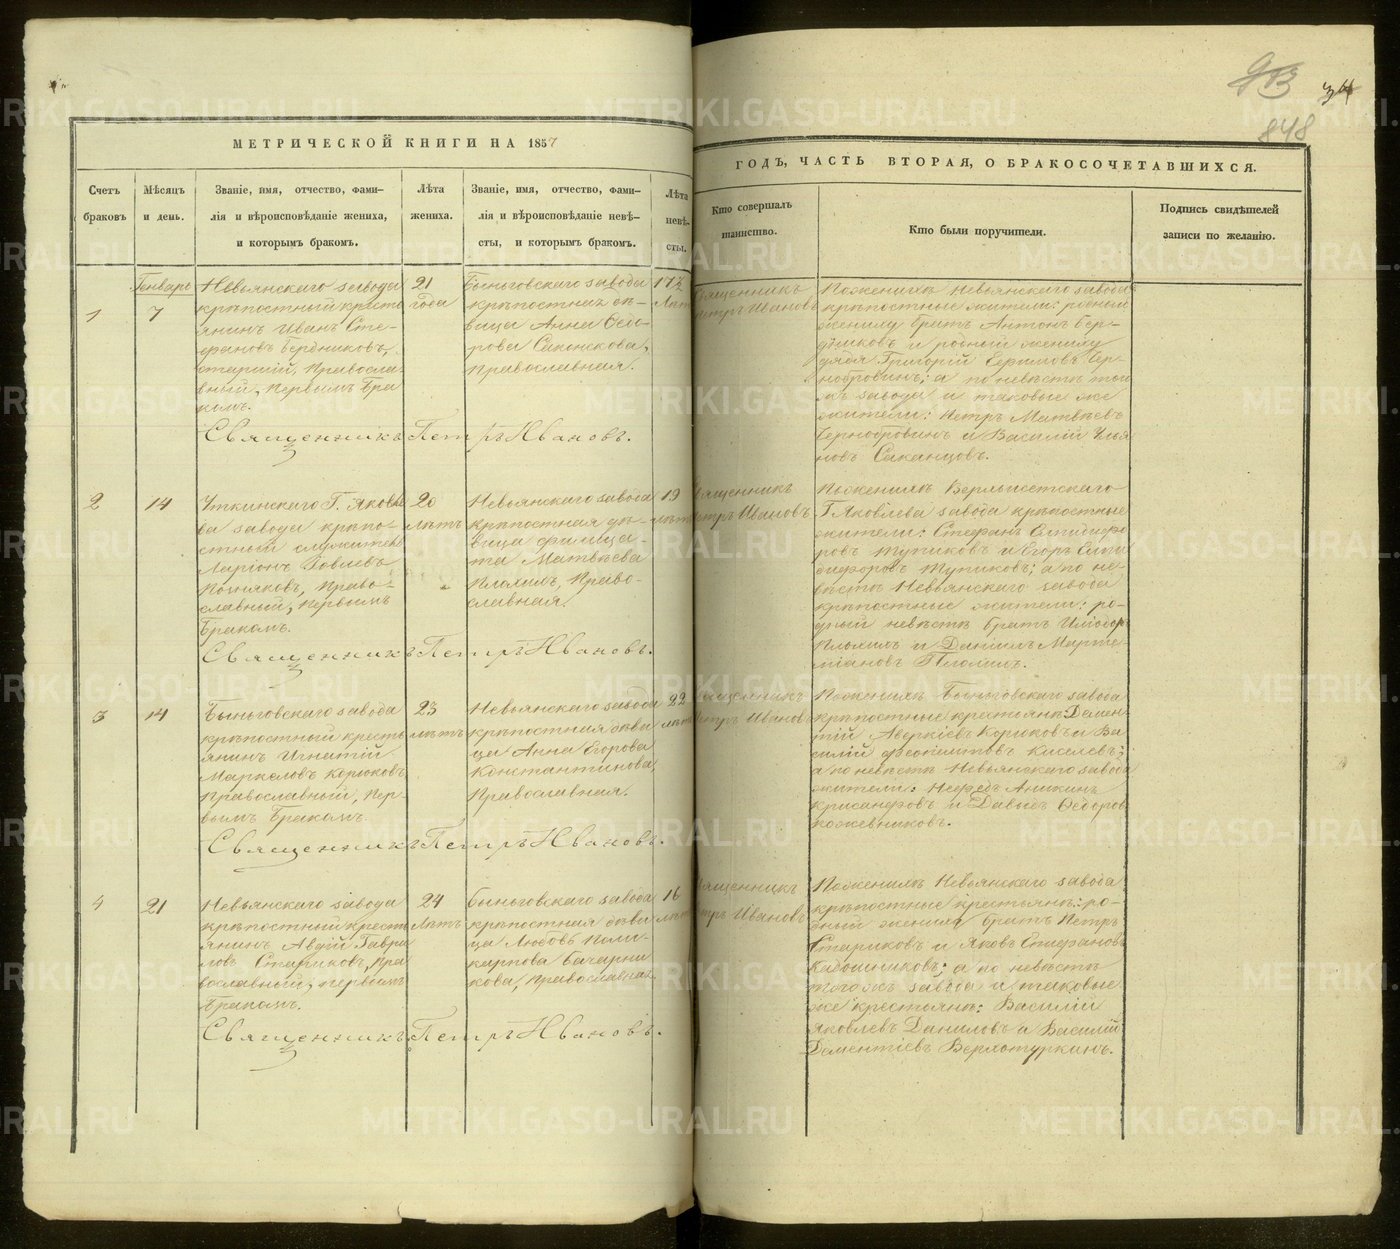 913 34
848
МЕТРИЧЕСКОЙ КНИГИ НА 1857
ГОДЪ, ЧАСТЬ ВТОРАЯ, О БРАКОСОЧЕТАВШИХСЯ.
Счетъ
браковъ
Мѣсяцъ
и день.
Званіе, имя, отчество, фами-
лія и вѣроисповѣданіе жениха,
и которымъ бракомъ.
Лѣта
жениха.
Званіе, имя, отчество, фами-
лія и вѣроисповѣданіе невѣ-
сты, и которымъ бракомъ.
Лѣта
невѣ-
сты.
Кто совершалъ
таинство.
Кто были поручители.
Подпись свидѣтелей
записи по желанію.
1
Генварь
7
Невьянскаго завода
крѣпостный кресть
янинъ Иванъ Сте-
фановъ Бердниковъ,
старшій, Правосла-
вный, Первымъ Бра
комъ.
21
года
Быньговскаго завода
крѣпостная дѣ-
вица Анна Ѳедо-
рова Саконскова,
Православная.
17½
Лѣт
Священникъ
Петръ Ивановъ
Поженихѣ Невьянскаго завода
крѣпостные жители: родный
жениху братъ Антонъ Бер-
дниковъ и родный жениху
дядя Григорій Ефимовъ Чер-
нобровинъ; а по невѣстѣ того
жъ завода и таковые же
жители: Петръ Матвѣевъ
Чернобровинъ и Василій Улья
новъ Саканцовъ.
Священникъ Петръ Ивановъ.
2
14
Уткинскаго Г. Яковле
ва завода крѣпо-
стный служитель
Ларіонъ Іовлевъ
Поняковъ, Право-
славный, Первымъ
Бракомъ.
20
лѣтъ
Невьянскаго завода
крѣпостная дѣ-
вица Филица-
та Матвѣева
Плохихъ, Право-
славная.
19
лѣт
Священникъ
Петръ Ивановъ
Поженихѣ Верхъисетскаго
Г. Яковлева завода крѣпостные
жители: Стефанъ Спиридо
ровъ Тупиковъ и Егоръ Спи
ридоровъ Тупиковъ; а по не-
вѣстѣ Невьянскаго завода
крѣпостные жители: ро-
дный невѣстѣ братъ Исидоръ
Плохихъ и Даніилъ Марте-
міановъ Плохихъ.
Священникъ Петръ Ивановъ.
3
14
Быньговскаго завода
крѣпостный кресть
янинъ Игнатій
Маркеловъ Корюковъ
Православный, Пер-
вымъ Бракомъ.
23
лѣтъ
Невьянскаго завода
крѣпостная дѣви
ца Анна Егорова
Константинова,
Православная.
22
лѣт
Священникъ
Петръ Ивановъ
Поженихѣ Быньговскаго завода
крѣпостные крестьяна: Демен-
тій Аверкіевъ Корюковъ и Ва
силій Феопемптовъ Киселевъ;
а по невѣстѣ Невьянскаго завода
жители: Нефедъ Аникинъ
Крисанфовъ и Давидъ Ѳедоров
Кожевниковъ.
Священникъ Петръ Ивановъ.
4
21
Невьянскаго завода
крѣпостный кресть
янинъ Авдій Гаври
ловъ Стариковъ, Пра
вославный, первымъ
Бракомъ.
24
Лѣтъ
Быньговскаго завода
крѣпостная дѣви
ца Любовь Поли-
карпова Бачарни
кова, Православная.
16
лѣт
Священникъ
Петръ Ивановъ
Поженихѣ Невьянскаго завода
крѣпостные крестьяна: ро-
дный жениха братъ Петръ
Стариковъ и Яковъ Стефановъ
Кадошниковъ; а по невѣстѣ
того жъ завода и таковые
же крестьяна: Василій
Яковлевъ Даниловъ и Василій
Дементіевъ Верхотуркинъ.
Священникъ Петръ Ивановъ.
METRIKI.GASO-URAL.RU